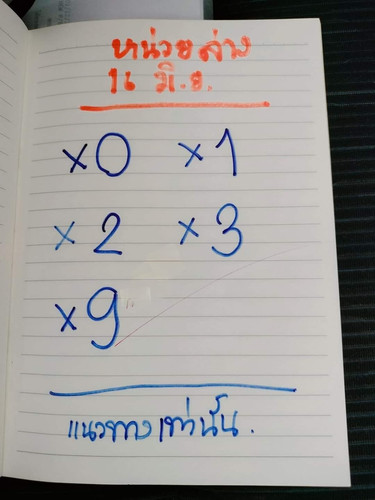 หน่วยล่าง
16 มิ.ย.
x0 x1
x2 x3
x9
แนวทางเท่านั้น.